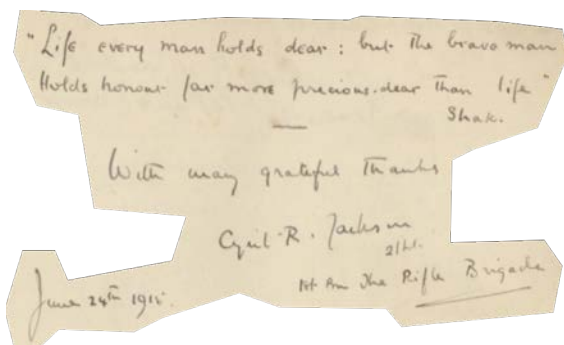 "Life every man holds dear : but the brave man
Holds honour far more precious-dear than life"
Shak.
With many grateful thanks
Cyril R. Jackson
2/Lt.
1st Bn The Rifle Brigade
June 24th 1915.